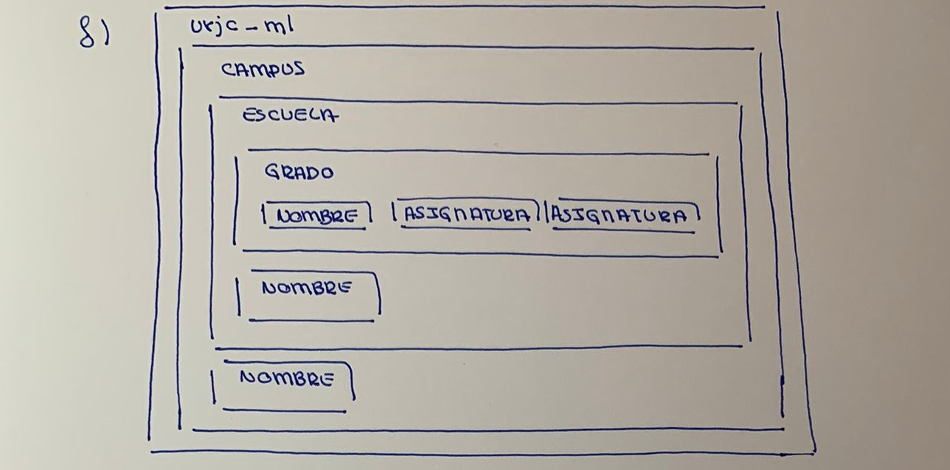 8)
urjc-ml
CAMPUS
ESCUELA
GRADO
NOMBRE ASIGNATURA ASIGNATURA
NOMBRE
NOMBRE